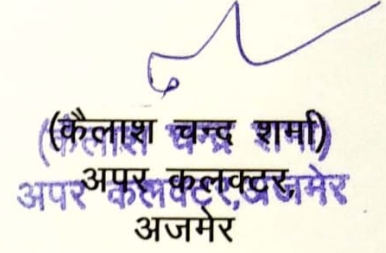 (कैलाश चन्द शर्मा)
अपर कलक्टर,
अजमेर
(कैलाश चन्द्र शर्मा)
अपर कलक्टर,अजमेर